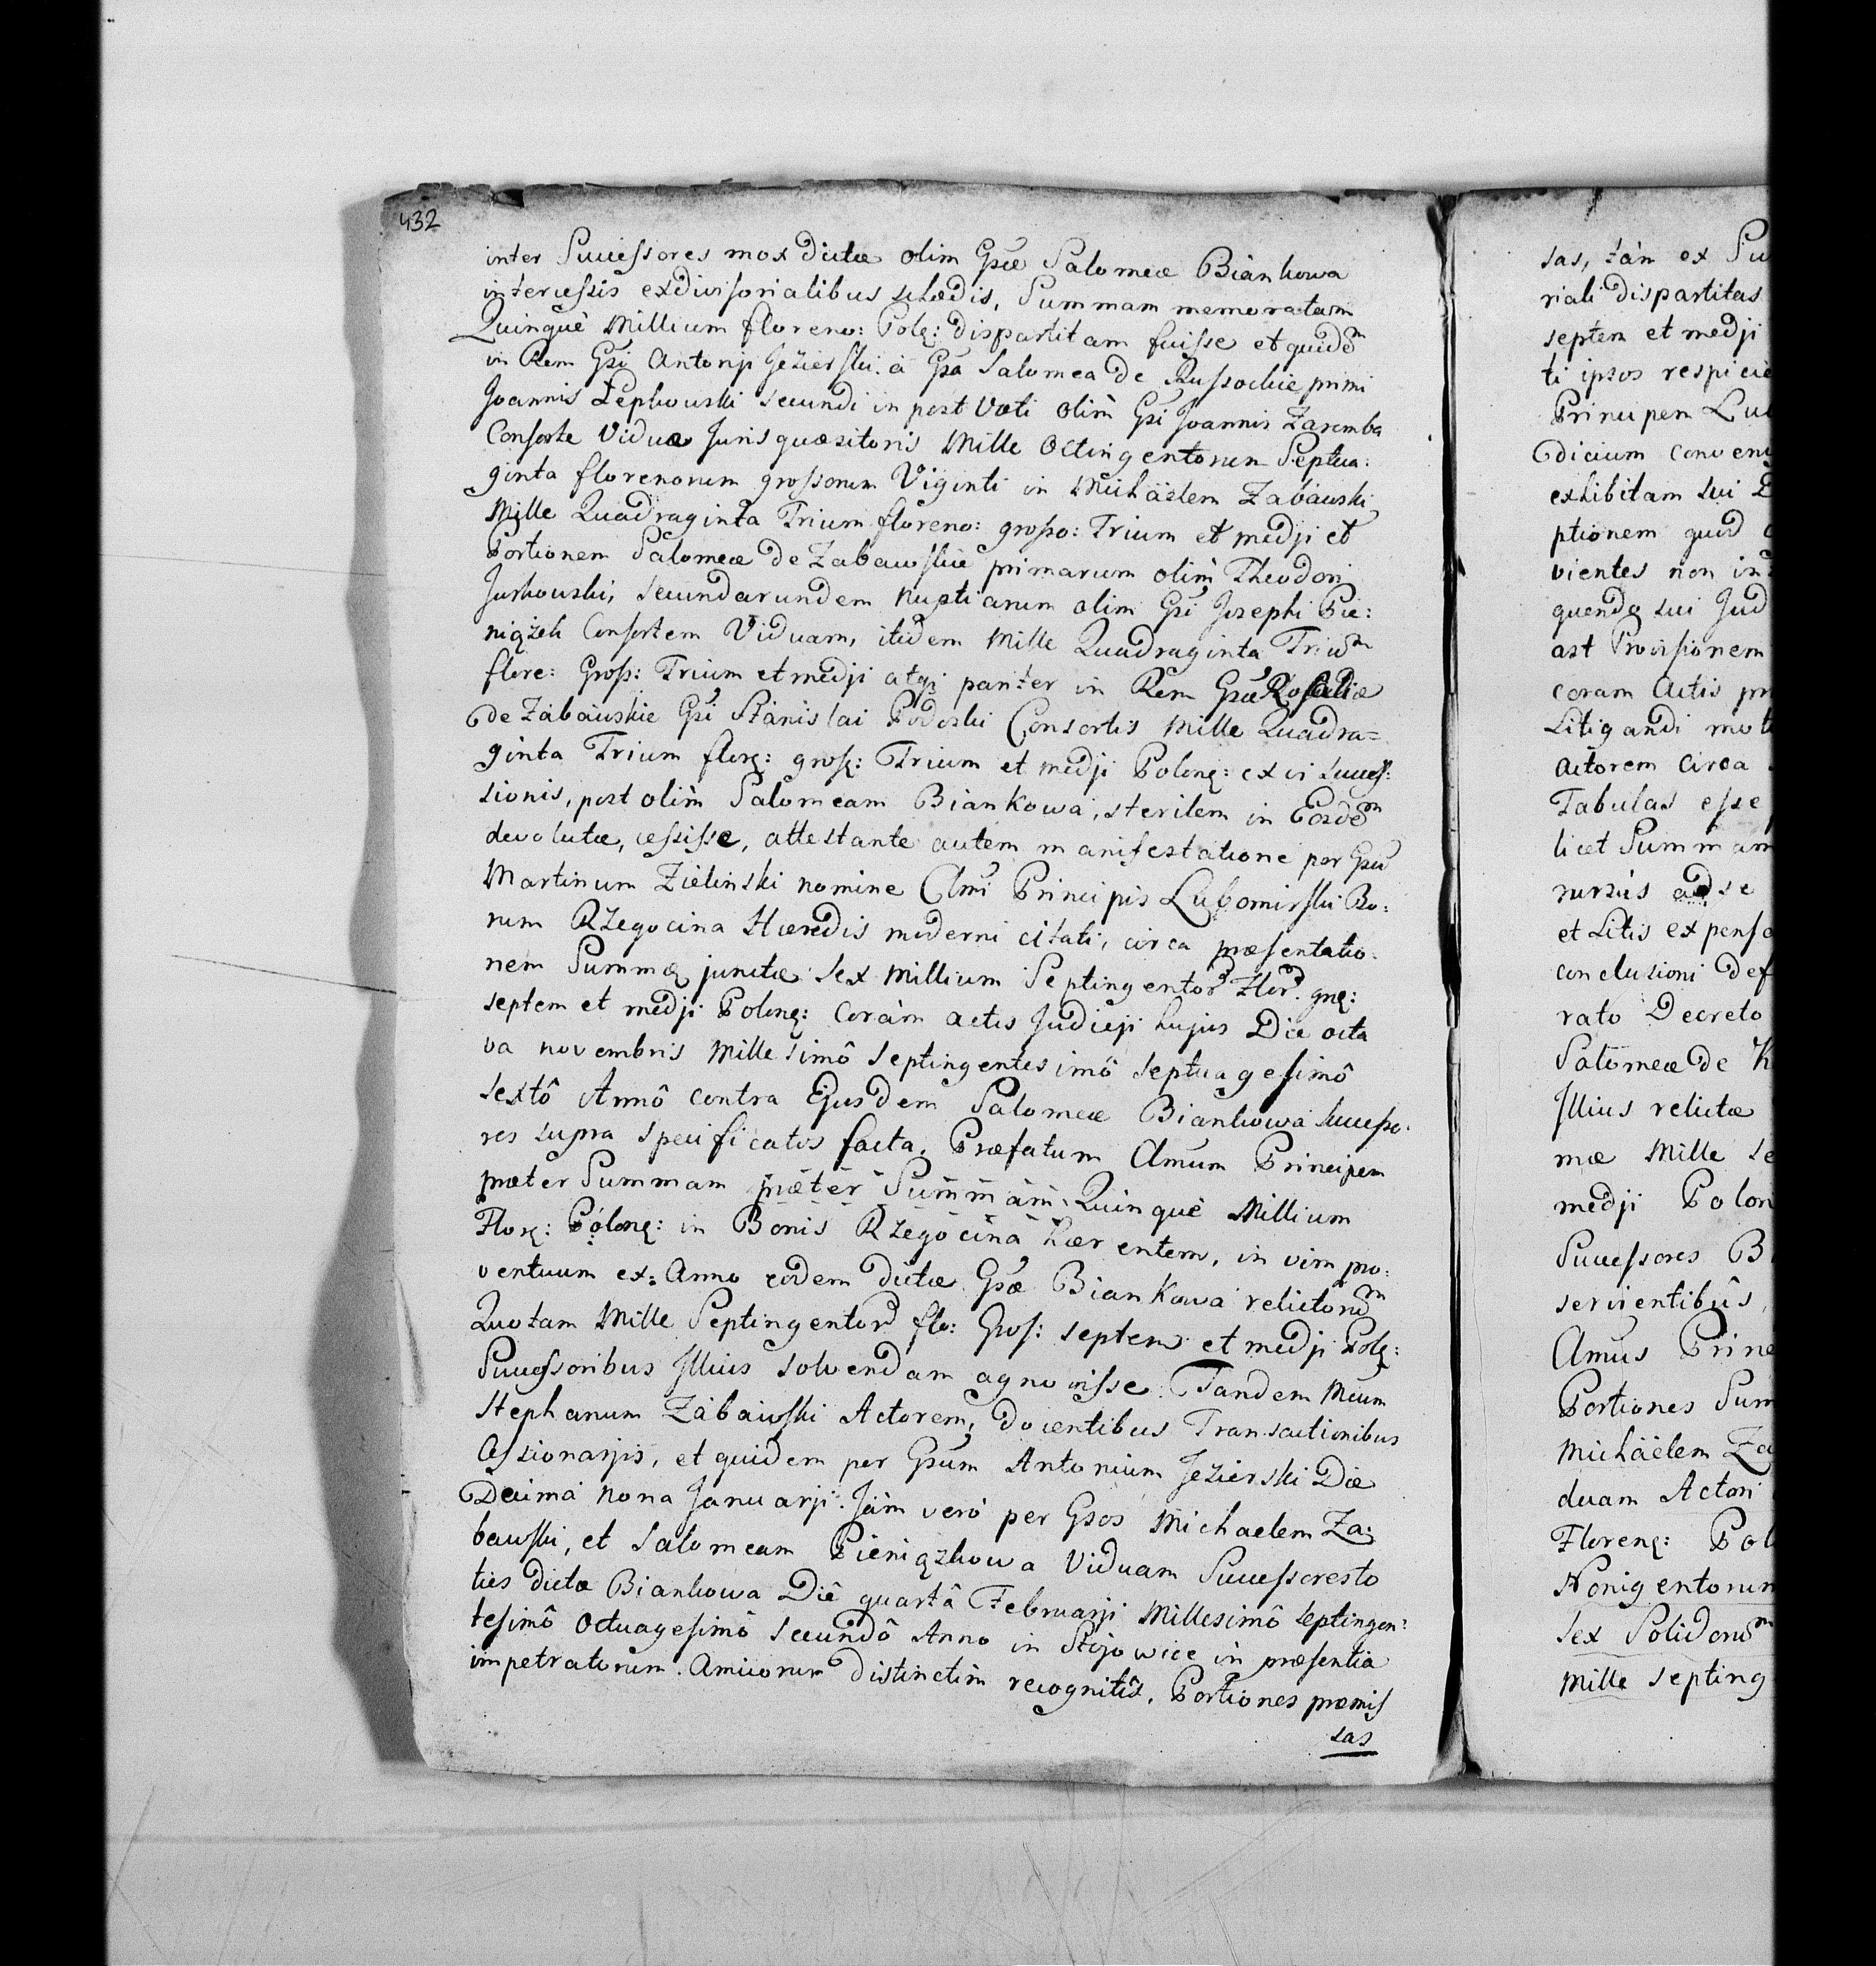 432
inter Successores mox dictæ olim Gsæ Salomeæ Biankowa
intercessis exdivisorialibus schedis, Summam memoratam
Quinquè Millium floreno: Polą: dispartitam fuisse et quidem
in Rem Gsi Antonij Jezierski. à Gsa Salomea de Russockie primi
Joannis Łepkowski secundi in post Voti olim Gsi Joannis Zaremba
Consorte Vidua Juris quæsitoris Mille Octingentorum Septua:
ginta florenorum grossorum Viginti in Michäelem Zabawski
Mille Quadraginta Trium floreno: grosso: Trium et medji et
Portionem Salomeæ de Zabawskie primarum olim Theodori
Jurkowski, secundarundem nuptiarum olim Gsi Josephi Pie:
niążek Consortem Viduam, itidem Mille Quadraginta Trium
flore: Gross: Trium et medji atqz pariter in Rem Gsæ Rosaliæ
de Zabawskie Gsi Stanislai Podoski Consortis Mille Quadra=
ginta Trium florą: grosą: Trium et medji Poloną: ex vi succes:
sionis, post olim Salomeam Biankowa, sterilem in Eosdem
devolutæ, cessisse, attestante autem manifestatione per Gsu
Martinum Zielinski nomine Clmi Principis Lubomirski Bo:
rum Rzegocina Hæredis moderni citati, circa præsentatio.
nem Summæ junctæ sex Millium Septingentor Flor. grą:
septem et medji Poloną: Coràm actis Judicji hujus Die octa
va novembris Millesimô septingentesimô septuagesimô
sextô Annô contra Ejusdem Salomeæ Biankowa Successo.
res supra specificatos facta. Præfatum Clmum Principem
præter Summam præter Summam Quinquè Millium
Florą: Poloną: in Bonis Rzegocina hærentem, in vim pro:
ventuum ex: Anno eodem dictæ Gsæ Biankowa relictorum
Quotam Mille Septingentor flo: Gros: septem et medji Polą:
Successoribus Illius solvendam agnovisse. Tandem Mcum
Stephanum Zabawski Actorem, docentibus Transactionibus
Cessionarjis, et quidem per Gsum Antonium Jezierski Die
Decima nona Januarji. Jàm verò per Gsos Michaelem Za:
bawski, et Salomeam Pieniązkowa Viduam Successores to
ties dictæ Biankowa Diê quartâ Februarji Millesimô septingen:
tesimô octuagesimô secundô Anno in Stojowice in præsentia
impetratorum. Amicorum distinctim recognitis, Portiones præmis
sas
sas, tàm ex Su
riali dispartitas
septem et medji
ti ipsos respicie
Principem Lub
dicium conveni
exhibitam sui
ptionem quod
vientes non in
quendo sui Jud
ast Provisionem
coram Actis pr
Litigandi mot
Actorem circa
Tabulas esse
licet Summam
rursùs adse
et Litis expens
conclusioni Def
rato Decreto
Salomeæ de K
Illius relictæ
mæ Mille se
medji Polon
Successores B
servientibûs
Clmus Princ
Portiones Sum
Michäelem Za
duam Actori
Floreną: Pol
Nonigentorum
sex Solidorum
Mille septing